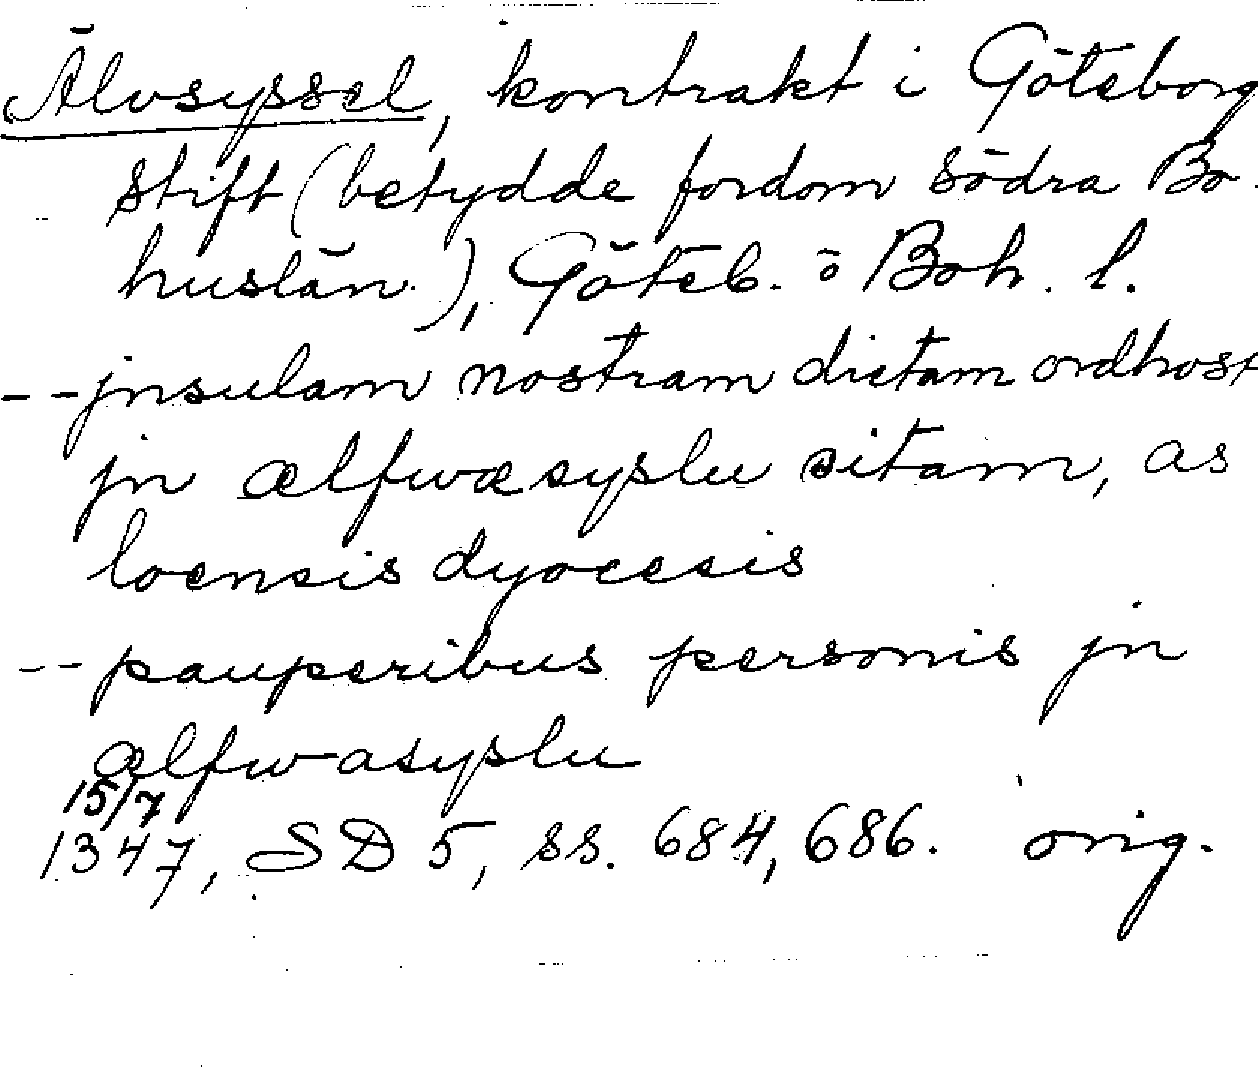 Älvsyssel, kontrakt i Göteborg
stift (betydde fordom södra Bo-
huslän.), Göteb. o Boh. l.
-- jnsulam nostram dictam ordhost
jn ælfwæsyslu sitam, as
loensis dyocesis
-- pauperibus personis jn
ælfwasyslu
15/7
1347, SD 5, ss. 684, 686. orig.